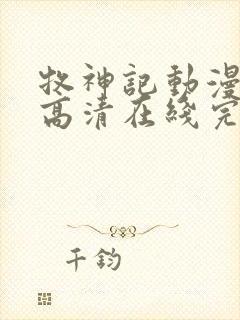 牧神記動漫
高清在綫完
千鈞